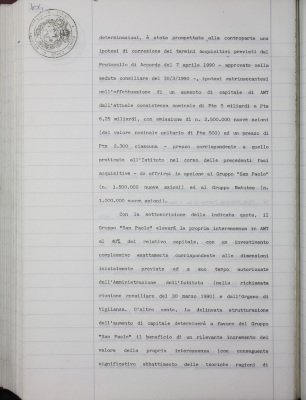 determinazioni, è stata prospettata alla controparte una
ipotesi di correzione dei termini acquisitivi previsti dal
Protocollo di Accordo del 7 aprile 1990 - approvato nella
seduta consiliare del 30/3/1990 -, ipotesi estrinsecantesi
nell'effettuazione di un aumento di capitale di AMT
dall'attuale consistenza nominale di Pts 5 miliardi a Pts
6,25 miliardi, con emissione di n. 2.500.000 nuove azioni
(del valore nominale unitario di Pts 500) ad un prezzo di
Pts 2.300 ciascuna - prezzo corrispondente a quello
praticato all'Istituto nel corso delle precedenti fasi
acquisitive - da offrirsi in opzione al Gruppo "San Paolo"
(n. 1.500.000 nuove azioni) ed al Gruppo
1.000.000 nuove azioni).
Con la sottoscrizione della indicata quota, il
Gruppo "San Paolo" eleverà la propria interessenza in AMT
al 40% del relativo capitale, con un investimento
complessivo esattamente corrispondente alle dimensioni
inizialmente previste ed a suo tempo autorizzate
dall'Amministrazione dell'Istituto (nella richiamata
riunione consiliare del 30 marzo 1990) e dall'Organo di
Vigilanza. D'altro canto, la delineata strutturazione
dell'aumento di capitale determinerà a favore del Gruppo
"San Paolo" il beneficio di un rilevante incremento del
valore della propria interessenza (con conseguente
significativo abbattimento delle teoriche ragioni di